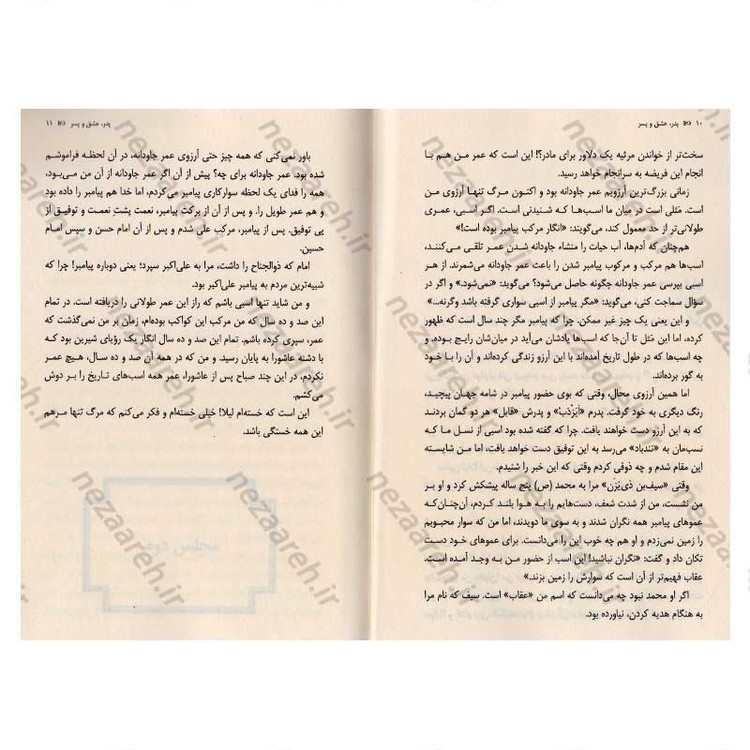 ۱۰ پدر، عشق و پسر
سخت‌تر از خواندن مرثیه یک دلاور برای مادر؟! این است که عمر من هم با
انجام این فریضه به سرانجام خواهد رسید.
زمانی بزرگ‌ترین آرزویم عمر جاودانه بود و اکنون مرگ تنها آرزوی من
است. مَثَلی است در میان ما اسب‌ها که شنیدنی است. اگر اسبی، عمری
طولانی‌تر از حد معمول کند، می‌گویند: «انگار مرکب پیامبر بوده است!»
هم‌چنان که آدم‌ها، آب حیات را منشاء جاودانه شدن عمر تلقی می‌کنند،
اسب‌ها هم مرکب و مرکوب پیامبر شدن را باعث عمر جاودانه می‌شمرند. از هر
اسبی بپرسی عمر جاودانه چگونه حاصل می‌شود؟ می‌گوید: «نمی‌شود.» و اگر در
سؤال سماجت کنی، می‌گوید: «مگر پیامبر از اسبی سواری گرفته باشد وگرنه...»
و این یعنی یک چیز غیر ممکن. چرا که پیامبر مگر چند سال است که ظهور
کرده، اما این مَثَل تا آن‌جا که اسب‌ها یادشان می‌آید در میان‌شان رایج بوده،
و چه اسب‌ها که در طول تاریخ آمده‌اند با این آرزو زندگی کرده‌اند و آن را با خود
به گور برده‌اند.
اما همین آرزوی محال، وقتی که بوی حضور پیامبر در شامه جهان پیچید،
رنگ دیگری به خود گرفت. پدرم «اَبَرْدَبْ» و پدرش «قابل» هر دو گمان بردند
که به این آرزو دست خواهند یافت. چرا که گفته شده بود اسبی از نسل ما که
نسب‌مان به «تندباد» می‌رسد به این توفیق دست خواهد یافت، اما من شایسته
این مقام شدم و چه ذوقی کردم وقتی که این خبر را شنیدم.
وقتی «سیف‌بن ذی‌یَزَن» مرا به محمد (ص) پنج ساله پیشکش کرد و او بر
من نشست، من از شدت شعف، دست‌هایم را به هوا بلند کردم، آن‌چنان‌که
عموهای پیامبر همه نگران شدند و به سوی ما دویدند، اما من که سوار محبوبم
را زمین نمی‌زدم و او هم چه خوب این را می‌دانست. برای عموهای خود دست
تکان داد و گفت: «نگران نباشید! این اسب از حضور من به وجد آمده است.
عقاب فهیم‌تر از آن است که سوارش را زمین بزند.»
اگر او محمد نبود چه می‌دانست که اسم من «عقاب» است. سیف که نام مرا
به هنگام هدیه کردن، نیاورده بود.
پدر، عشق و پسر ۱۱
باور نمی‌کنی که همه چیز حتی آرزوی عمر جاودانه، در آن لحظه فراموشم
شده بود. عمر جاودانه برای چه؟ پیش از آن اگر عمر جاودانه از آن من می‌بود،
همه را فدای یک لحظه سوارکاری پیامبر می‌کردم، اما خدا هم پیامبر را داده بود
و هم عمر طویل را. و پس از آن از برکت پیامبر، نعمت پشتِ نعمت و توفیق از
پی توفیق. پس از پیامبر، مرکب علی شدم و پس از آن امام حسن و سپس امام
حسین.
امام که ذوالجناح را داشت، مرا به علی‌اکبر سپرد؛ یعنی دوباره پیامبر! چرا که
شبیه‌ترین مردم به پیامبر علی‌اکبر بود.
و من شاید تنها اسبی باشم که راز این عمر طولانی را دریافته است. در تمام
این صد و ده سال که من مرکب این کواکب بوده‌ام، زمان بر من نمی‌گذشت که
عمر، سپری کرده باشم. تمام این صد و ده سال انگار یک رؤیای شیرین بود که
با دشنه عاشورا به پایان رسید. و من که در همه آن صد و ده سال، هیچ عمر
نکردم، در این چند صباح پس از عاشورا، عمر همه اسب‌های تاریخ را بر دوش
می‌کشم.
این است که خسته‌ام لیلا! خیلی خسته‌ام و فکر می‌کنم که مرگ تنها مرهم
این همه خستگی باشد.
nezaareh.ir